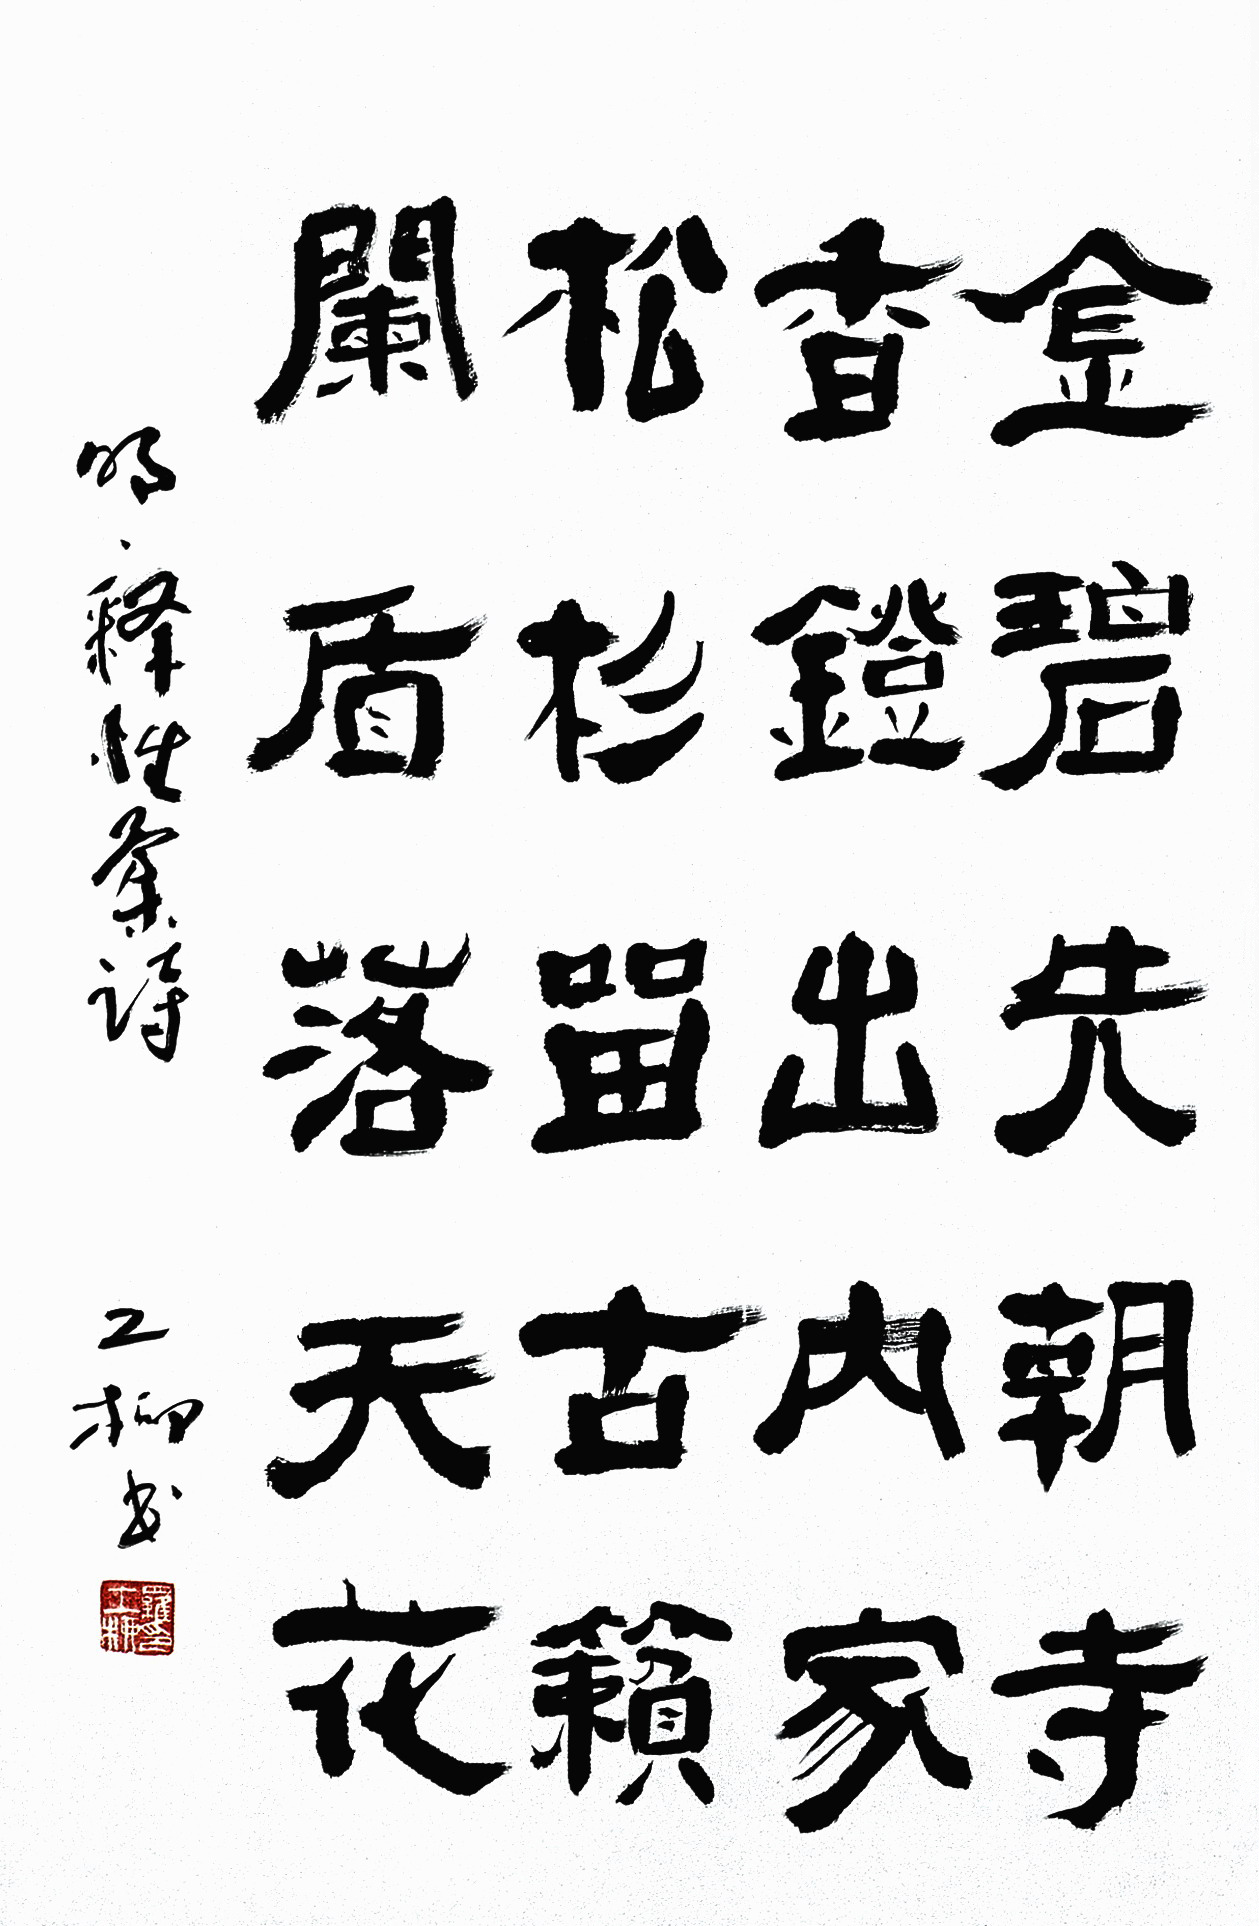 金碧先朝寺
香鐙出内家
松杉留古籟
闌盾落天花
明·释性燊詩
工柳书